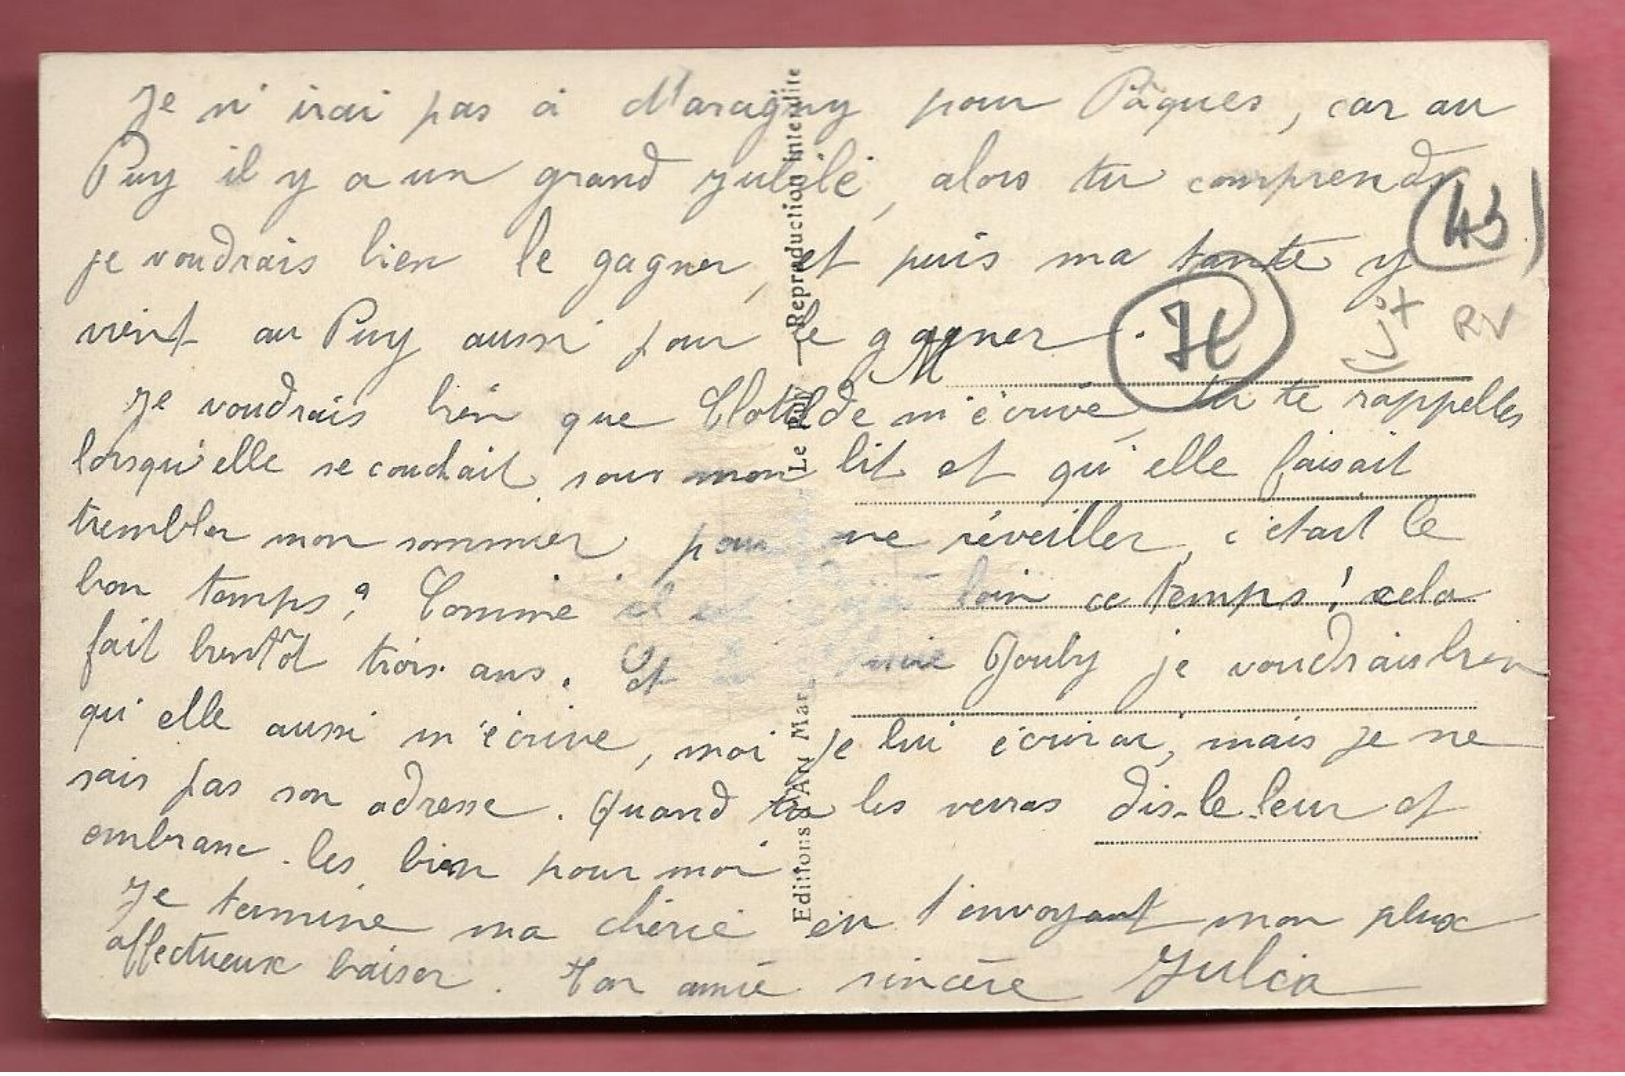 Je n'irai pas à Maragny pour Pâques, car au
Puy il y a un grand Jubilé, alors tu comprends
je voudrais bien le gagner, et puis ma tante y
vient au Puy aussi pour le gagner.
Je voudrais bien que Clotilde m'écrive, tu te rappelles
lorsqu'elle se couchait sous mon lit et qu'elle faisait
trembler mon sommier pour me réveiller, c'était le
bon temps? Comme il est déjà loin ce temps! cela
fait bientôt trois ans. Et Jouby je voudrais bien
qu'elle aussi m'écrive, moi je lui écrirai, mais je ne
sais pas son adresse. Quand tu les verras dis-le-leur et
embrasse-les bien pour moi
Je termine ma chérie en t'envoyant mon plus
affectueux baiser. Ton amie sincère Julia
(43)
RV
M
Editions Mar Le Puy — Reproduction interdite